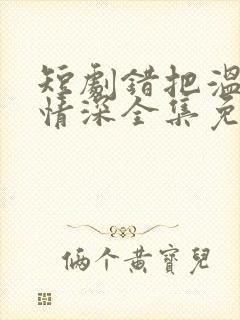 短劇錯把溫
情深全集免
俩个黄寶兒